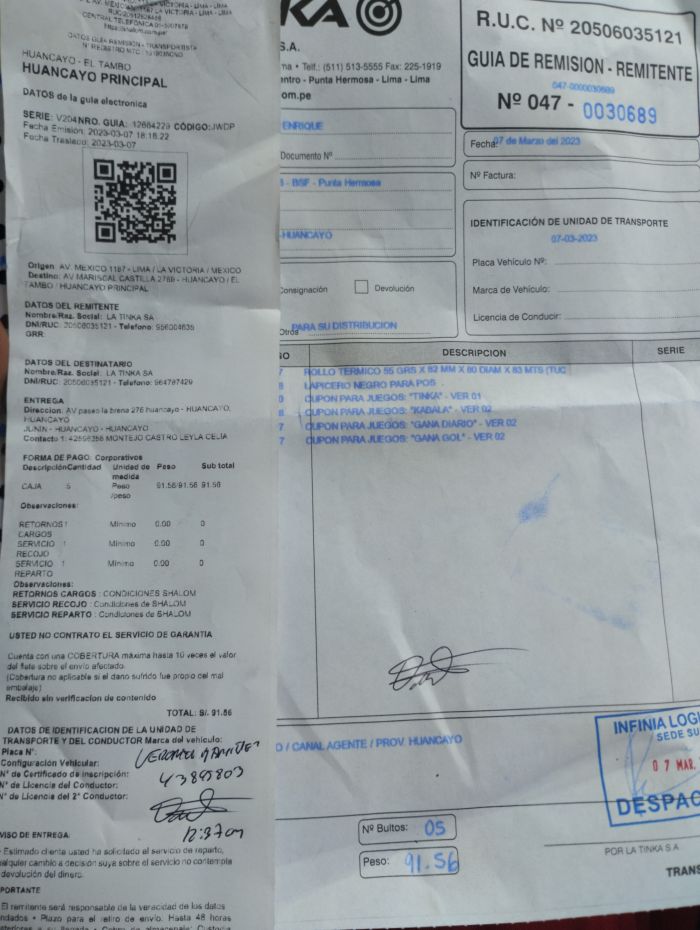 CENTRAL TELEFONICA 01-5007878
DATOS GUÍA REMISION - TRANSPORTISTA
HUANCAYO - EL TAMBO
HUANCAYO PRINCIPAL
DATOS de la guia electronica
SERIE: V204 NRO. GUIA: 12664229 CÓDIGO: JWDP
Fecha Emisión: 2023-03-07 18:16:22
Fecha Traslado: 2023-03-07
Origen: AV. MEXICO 1187 - LIMA / LA VICTORIA / MEXICO
Destino: AV MARISCAL CASTILLA 2769 - HUANCAYO / EL
TAMBO / HUANCAYO PRINCIPAL
DATOS DEL REMITENTE
Nombre/Raz. Social: LA TINKA SA
DNI/RUC: 20506035121 - Telefono: 956004635
GRR:
DATOS DEL DESTINATARIO
Nombre/Raz. Social: LA TINKA SA
DNI/RUC: 20506035121 - Telefono: 964797429
ENTREGA
Direccion: AV paseo la brena 276 huancayo - HUANCAYO,
HUANCAYO
JUNIN - HUANCAYO - HUANCAYO
Contacto 1: MONTEJO CASTRO LEYLA CELIA
FORMA DE PAGO: Corporativos
Descripcion Cantidad Unidad de medida Peso Sub total
CAJA 5 Peso /peso 91.56/91.56 91.56
Observaciones:
RETORNOS 1 Minimo 0.00 0
CARGOS
SERVICIO 1 Minimo 0.00 0
RECOJO
SERVICIO 1 Minimo 0.00 0
REPARTO
Observaciones:
RETORNOS CARGOS : CONDICIONES SHALOM
SERVICIO RECOJO : Condiciones de SHALOM
SERVICIO REPARTO : Condiciones de SHALOM
USTED NO CONTRATO EL SERVICIO DE GARANTIA
Cuenta con una COBERTURA máxima hasta 10 veces el valor
del flete sobre el envio afectado.
(Cobertura no aplicable si el dano sufrido fue propio del mal
embalaje)
Recibido sin verificacion de contenido
TOTAL: S/. 91.56
DATOS DE IDENTIFICACION DE LA UNIDAD DE
TRANSPORTE Y DEL CONDUCTOR Marca del vehiculo:
Placa N°:
Configuración Vehicular:
N° de Certificado de Inscripción:
N° de Licencia del Conductor:
N° de Licencia del 2° Conductor:
43895803
12:37
VISO DE ENTREGA:
Estimado cliente usted ha solicitado el servicio de reparto,
alquier cambio a decision suya sobre el servicio no contempla
devolución del dinero.
PORTANTE
El remitente será responsable de la veracidad de los datos
ndados • Plazo para el retiro de envio: Hasta 48 horas
KA
S.A.
ma • Telf.: (511) 513-5555 Fax: 225-1919
entro - Punta Hermosa - Lima - Lima
om.pe
R.U.C. Nº 20506035121
GUIA DE REMISION - REMITENTE
047-0000030689
Nº 047 - 0030689
ENRIQUE
Documento Nº
Fecha: 07 de Marzo del 2023
Nº Factura:
- BSF - Punta Hermosa
HUANCAYO
IDENTIFICACIÓN DE UNIDAD DE TRANSPORTE
07-03-2023
Placa Vehículo Nº:
Marca de Vehículo:
Licencia de Conducir:
Consignación Devolución
Otros PARA SU DISTRIBUCION
GO DESCRIPCION SERIE
7 ROLLO TERMICO 55 GRS X 82 MM X 80 DIAM X 83 MTS (TUC
8 LAPICERO NEGRO PARA POS
0 CUPON PARA JUEGOS: "TINKA" - VER 01
8 CUPON PARA JUEGOS: "KABALA" - VER 02
7 CUPON PARA JUEGOS: "GANA DIARIO" - VER 02
7 CUPON PARA JUEGOS: "GANA GOL" - VER 02
O / CANAL AGENTE / PROV. HUANCAYO
INFINIA LOG
SEDE SU
07 MAR.
DESPAC
Nº Bultos: 05
Peso: 91.56
POR LA TINKA S.A.
TRANS